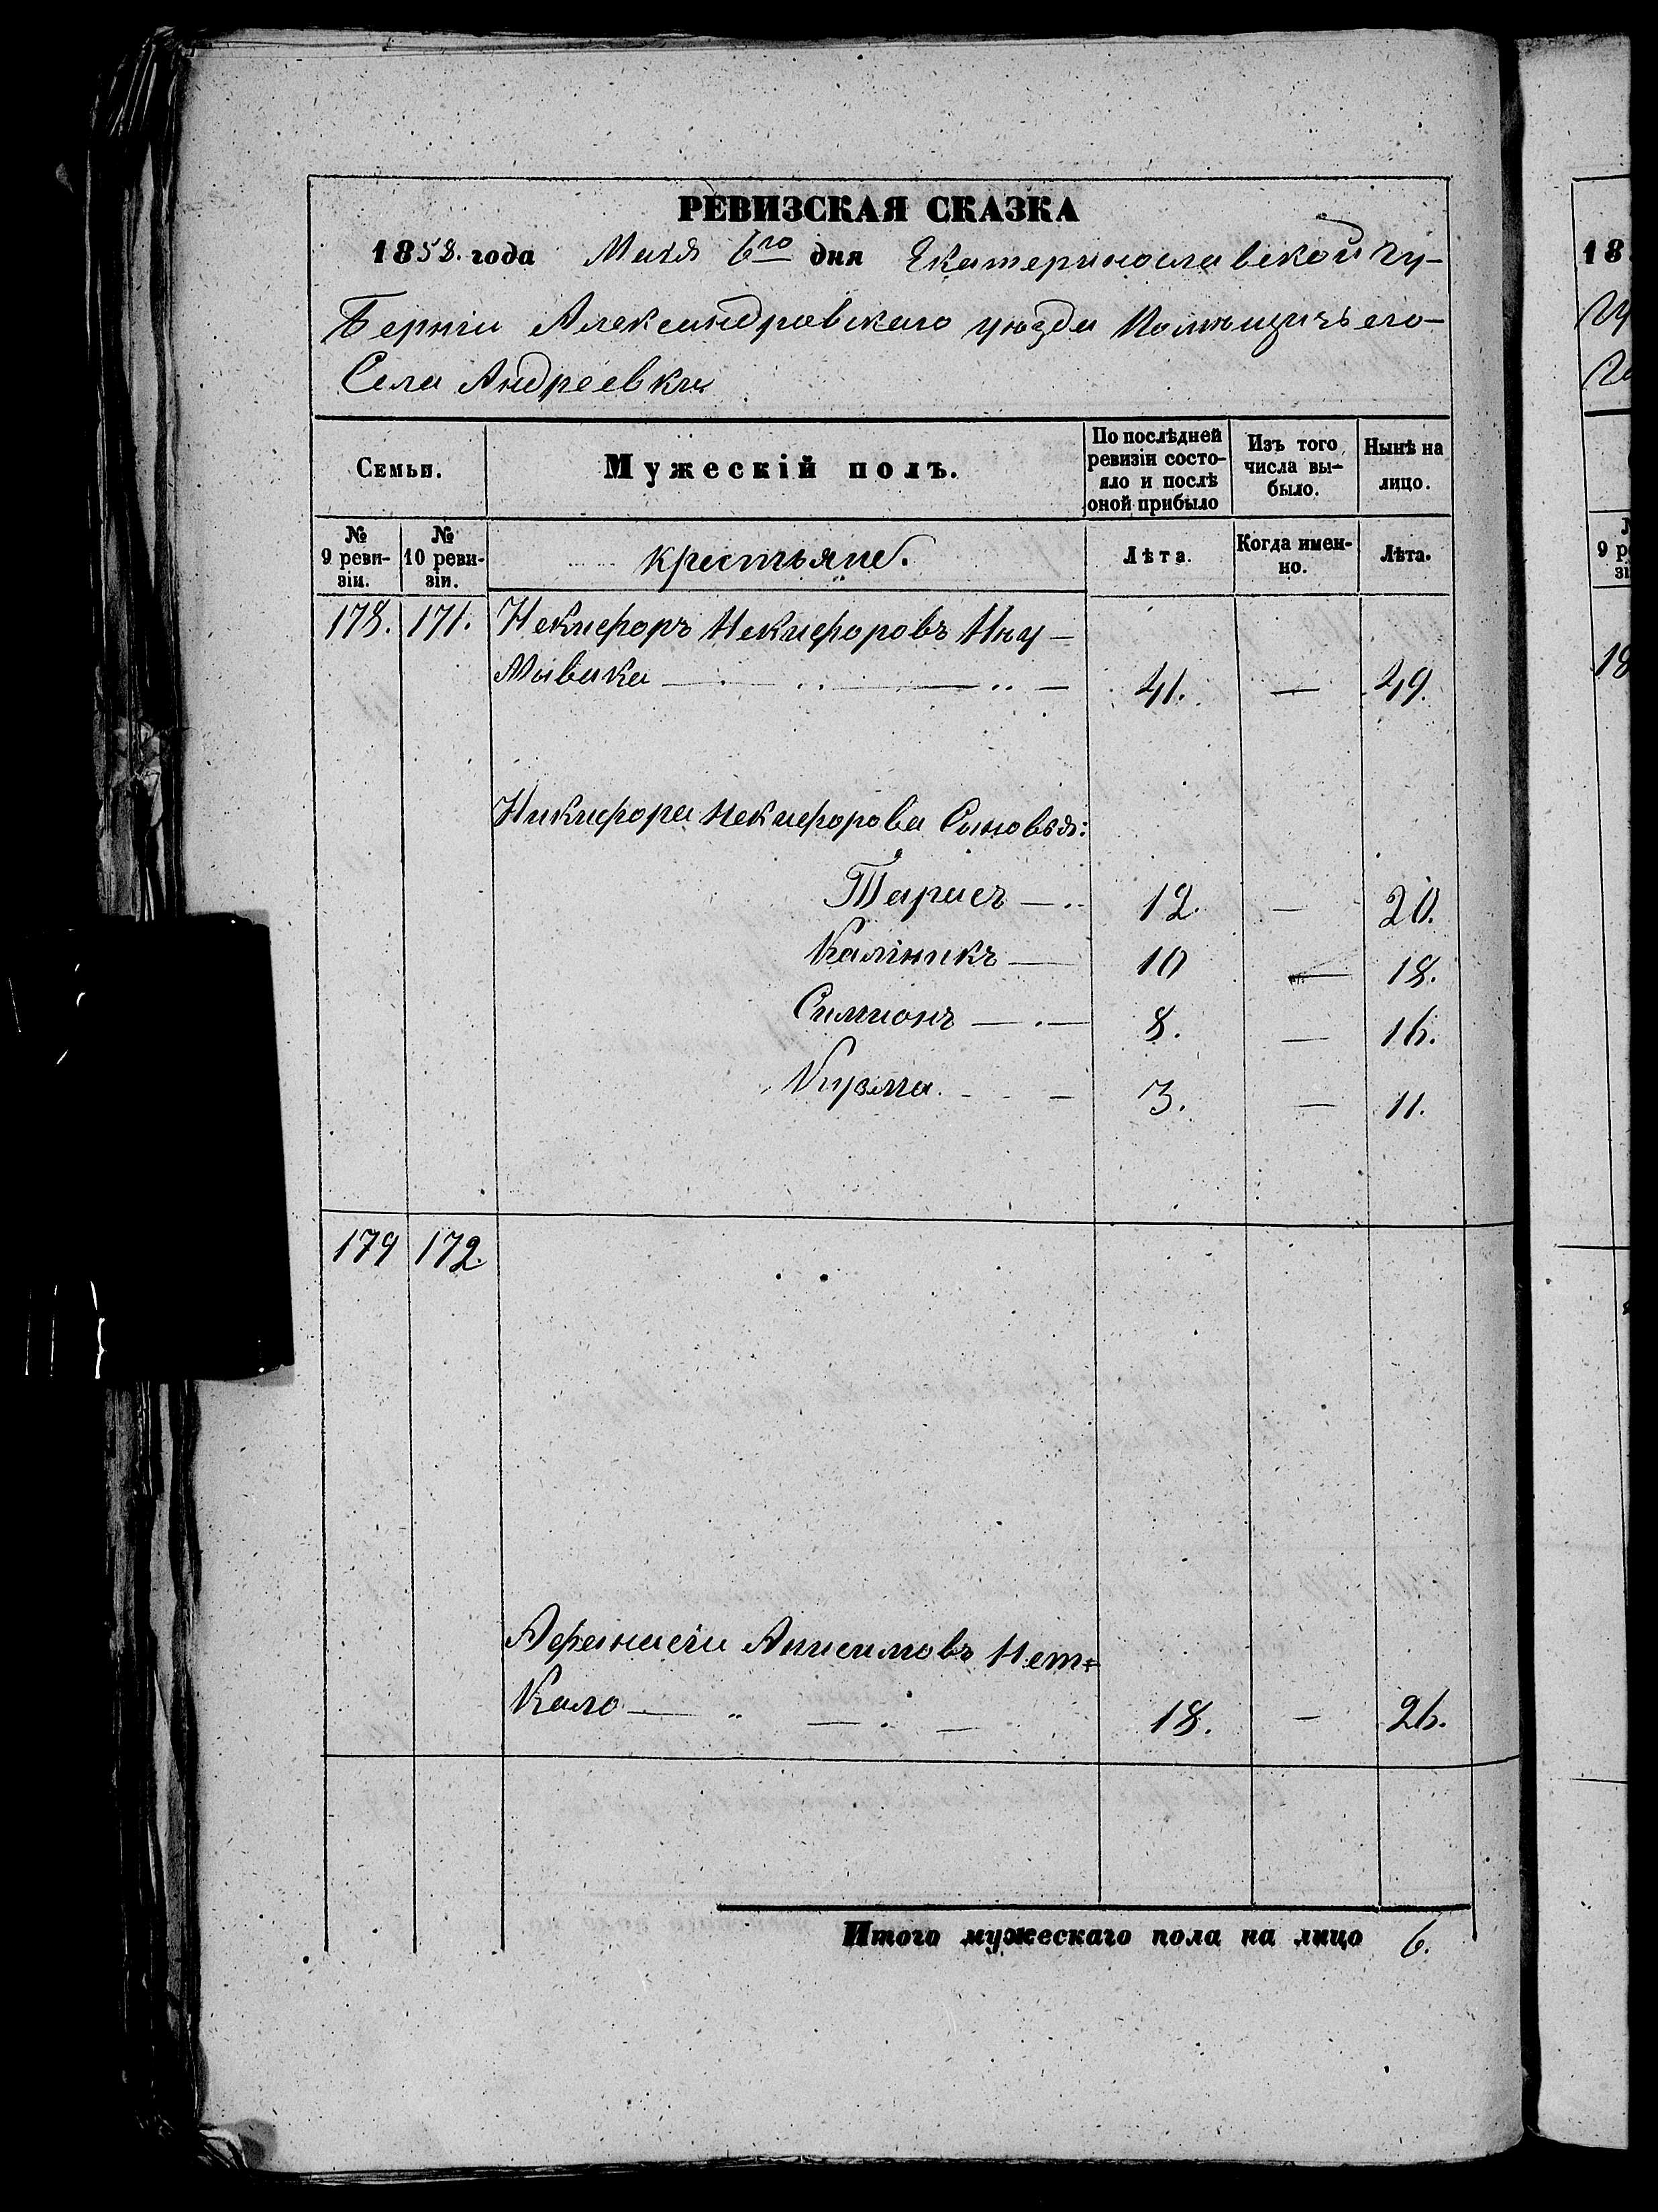 РЕВИЗСКАЯ СКАЗКА
1858. года Маія 6го дня Екатеринославской гу-
берніи Александровскаго уѣзда Помѣщичьего-
Села Андреевки
Семьи.
Мужескій полъ.
По послѣдней ревизіи состо-яло и послѣ оной прибыло
Изъ того числа вы-было.
Нынѣ на лицо.
№ 9 реви-зіи.
№ 10 реви-зіи.
крестьяне.
Лѣта.
Когда имен-но.
Лѣта.
178. 171. Некифоръ Некифоровъ Ну-
мывака — 41. — 49.
Никифора Некифорова Сыновья:
Тарасъ — 12. — 20.
Калѣникъ — 10 — 18.
Симионъ — 8. — 16.
Кузма. — 3. — 11.
179 172.
Афанасіи Анисимовъ Нет=
Кало — 18. — 26.
Итого мужескаго пола на лицо 6.
18
9 ре
18